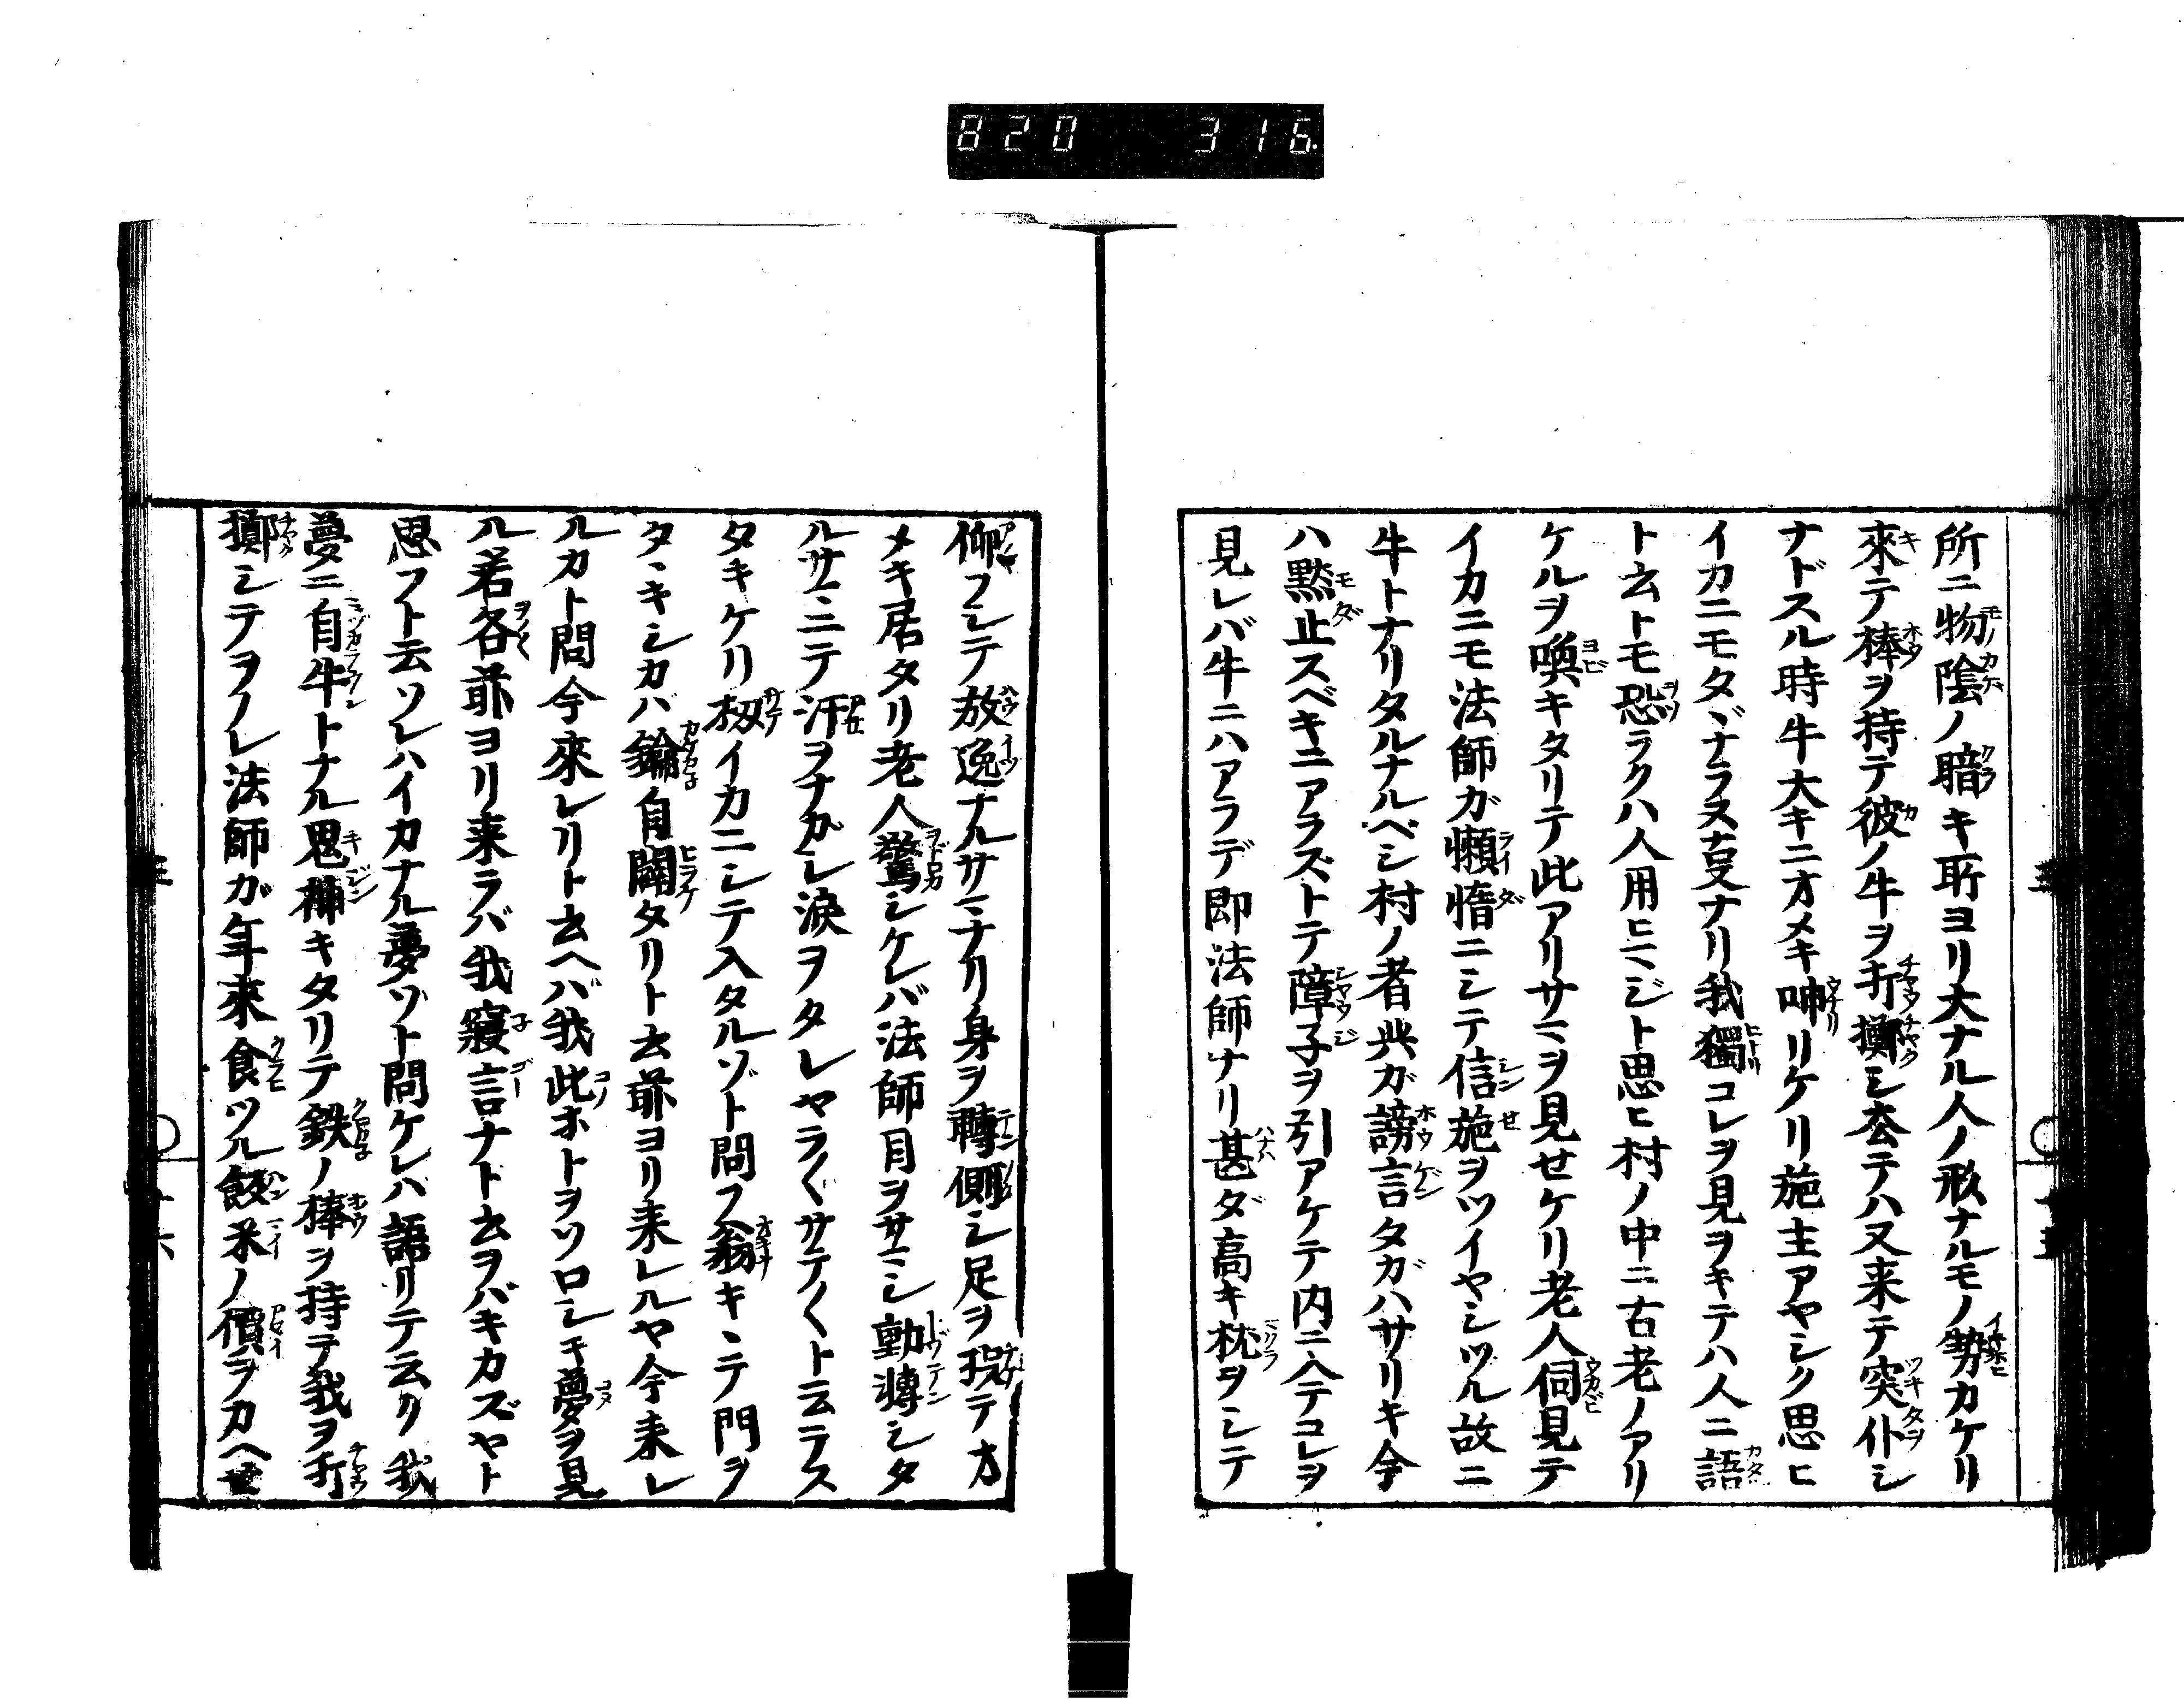 820 316
所ニ物陰ノ暗キ所ヨリ大ナル人ノ形ナルモノ勢カケリ
來テ棒ヲ持テ彼ノ牛ヲ打擲シ杏テハ又来テ突仆シ
ナドスル時牛大キニオメキ呻リケリ施主アヤシク思ヒ
イカニモタヾナラヌ叓ナリ我獨コレヲ見ヲキテハ人ニ語
ト云トモ恐ラクハ人用ヒマジト思ヒ村ノ中ニ古老ノアリ
ケルヲ喚キタリテ此アリサマヲ見せケリ老人伺見テ
イカニモ法師ガ懶惰ニシテ信施ヲツイヤシツル故ニ
牛トナリタルナルベシ村ノ者共ガ謗言タガハサリキ今
ハ黙止スベキニアラズトテ障子ヲ引アケテ内ニ入テコレヲ
見レバ牛ニハアラデ即法師ナリ甚ダ高キ枕ヲシテ
仰フシテ放逸ナルサマナリ身ヲ轉側シ足ヲ テオ
メキ居タリ老人驚シケレバ法師目ヲサマシ動轉シタ
ルサマニテ汗ヲナガシ涙ヲタレヤラ〱サテ〱ト云テス
タキケリ扨イカニシテ入タルゾト問フ翁キヽテ門ヲ
タヽキシカバ鑰自闢タリト云爺ヨリ来レルヤ今来レ
ルカト問今來レリト云ヘバ我此ホトヲソロシキ夢ヲ見
ル若各爺ヨリ来ラバ我寝言ナト云ヲバキカズヤト
思フト云ソレハイカナル夢ゾト問ケレハ語リテ云ク我
夢ニ自牛トナル鬼神キタリテ鉄ノ棒ヲ持テ我ヲ打
擲シテヲノレ法師ガ年來食ツル飯米ノ價ヲカヘせ